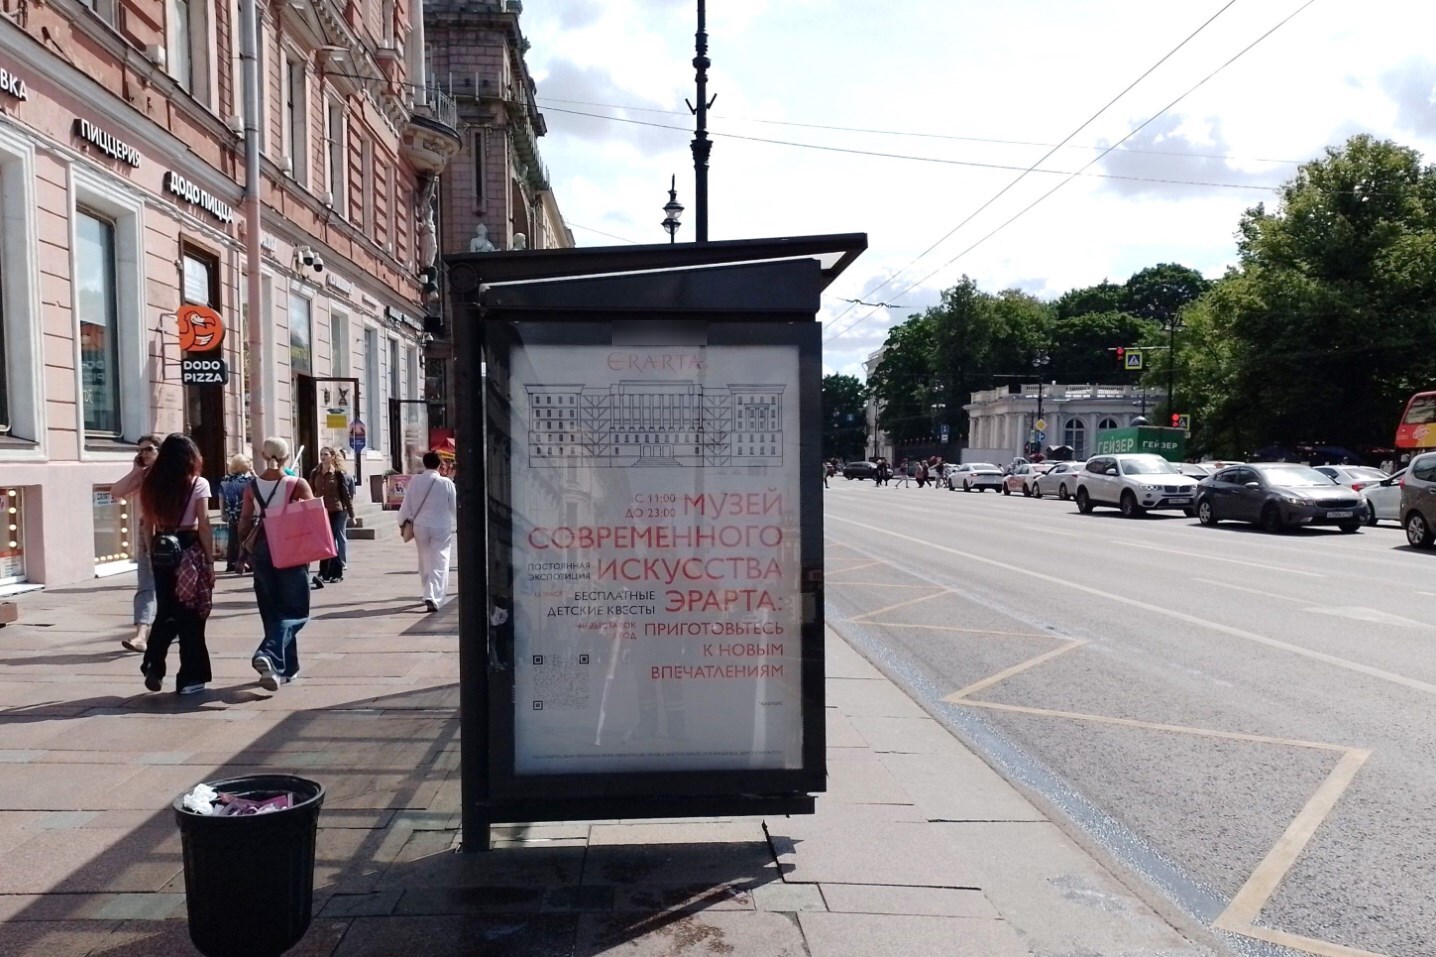 ВКА
ПИЦЦЕРИЯ
ДОДО ПИЦЦА
DODO
PIZZA
ERARTA
С 11:00
ДО 23:00
МУЗЕЙ
СОВРЕМЕННОГО
ПОСТОЯННАЯ
ЭКСПОЗИЦИЯ
ИСКУССТВА
БЕСПЛАТНЫЕ
ДЕТСКИЕ КВЕСТЫ
ЭРАРТА:
ПРИГОТОВЬТЕСЬ
К НОВЫМ
ВПЕЧАТЛЕНИЯМ
ГЕЙЗЕР
ГЕЙЗЕР